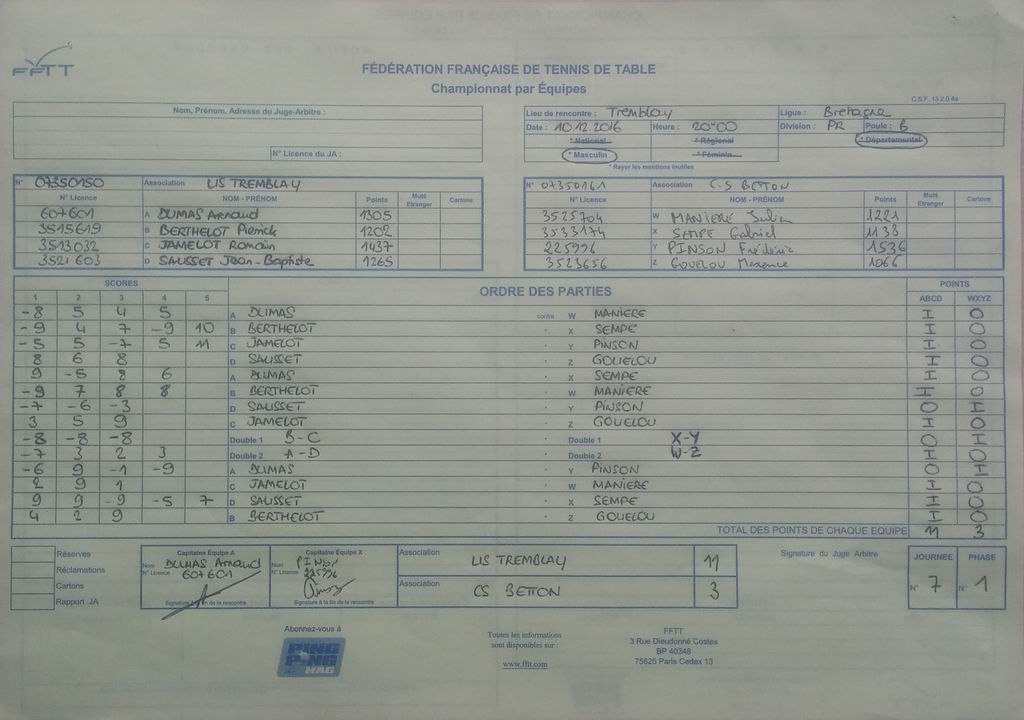 FFTT
FÉDÉRATION FRANÇAISE DE TENNIS DE TABLE
Championnat par Équipes
C.S.F. 13.2.0.4a
Nom, Prénom, Adresse du Juge-Arbitre :
N° Licence du JA :
Lieu de rencontre : Tremblay Ligue : Bretagne
Date : 10.12.2016 Heure : 20H00 Division : PR Poule : B
* National * Régional * Départemental
* Masculin * Féminin
* Rayer les mentions inutiles
N° 07350150 Association US TREMBLAY
N° Licence NOM - PRÉNOM Points Muté Etranger Cartons
607601 A DUMAS Arnaud 1305
3515619 B BERTHELOT Pierrick 1202
3513032 C JAMELOT Romain 1437
3521603 D SAUSSET Jean-Baptiste 1265
N° 07350161 Association C.S BETTON
N° Licence NOM - PRÉNOM Points Muté Etranger Cartons
3525704 W MANIERE Julien 1221
3533174 X SEMPE Gabriel 1138
225996 Y PINSON Frédéric 1536
3523656 Z GOUELOU Maxence 1066
SCORES ORDRE DES PARTIES POINTS
1 2 3 4 5 ABCD WXYZ
-8 5 4 5 A DUMAS contre W MANIERE I O
-9 4 7 -9 10 B BERTHELOT - X SEMPE I O
-5 5 -7 5 11 C JAMELOT - Y PINSON I O
8 6 8 D SAUSSET - Z GOUELOU I O
9 -5 8 6 A DUMAS - X SEMPE I O
-9 7 8 8 B BERTHELOT - W MANIERE I O
-7 -6 -3 D SAUSSET - Y PINSON O I
3 5 9 C JAMELOT - Z GOUELOU I O
-8 -8 -8 Double 1 B-C - Double 1 X-Y O I
-7 3 2 3 Double 2 A-D - Double 2 W-Z I O
-6 9 -1 -9 A DUMAS - Y PINSON O I
2 9 1 C JAMELOT - W MANIERE I O
9 9 -9 -5 7 D SAUSSET - X SEMPE I O
4 2 9 B BERTHELOT - Z GOUELOU I O
TOTAL DES POINTS DE CHAQUE EQUIPE 11 3
Réserves
Réclamations
Cartons
Rapport JA
Capitaine Équipe A
Nom DUMAS Arnaud
N° Licence 607601
Signature à la fin de la rencontre
Capitaine Équipe X
Nom PINSON
N° Licence 225996
Signature à la fin de la rencontre
Association US TREMBLAY 11
Association CS BETTON 3
Signature du Juge Arbitre
JOURNEE PHASE
N° 7 N° 1
Abonnez-vous à
PING PONG MAG
Toutes les informations
sont disponibles sur :
www.fftt.com
FFTT
3 Rue Dieudonné Costes
BP 40348
75625 Paris Cedex 13